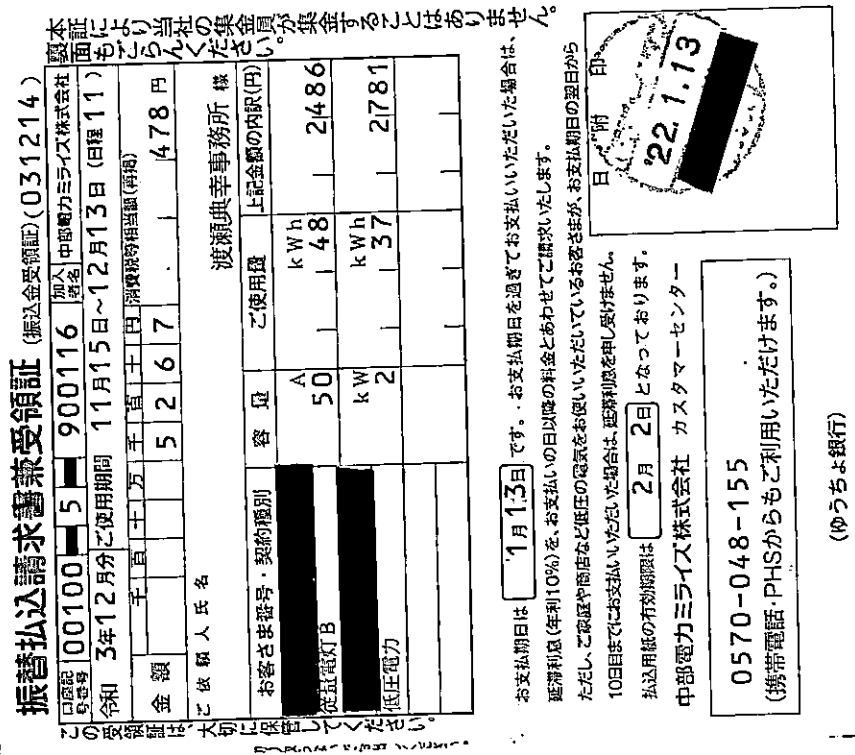 振替払込請求書兼受領証 (振込金受領証)(031214)
口座記号番号 00100 5 900116 加入者名 中部電力ミライズ株式会社
令和 3年12月分 ご使用期間 11月15日～12月13日 (日程11)
金額 千百十万千百十円 5267 消費税等相当額(再掲) 478円
ご依頼人氏名 渡瀬典幸事務所 様
お客さま番号・契約種別 容量 ご使用量 上記金額の内訳(円)
従量電灯B A 50 kWh 48 2486
低圧電力 kW 2 kWh 37 2781
お支払期日は 1月13日 です。お支払期日を過ぎてお支払いいただいた場合は、
延滞利息(年利10%)を、お支払いの日以降の料金とあわせてご請求いたします。
ただし、ご家庭や商店など低圧の電気をお使いいただいているお客さまが、お支払期日の翌日から
10日目までにお支払いいただいた場合は、延滞利息を申し受けません。
払込用紙の有効期限は 2月 2日 となっております。
中部電力ミライズ株式会社 カスタマーセンター
0570-048-155
(携帯電話・PHSからもご利用いただけます。)
日附印
'22.1.13
(ゆうちょ銀行)
本証により当社の集金員が集金することはありません。
裏面もごらんください。
この受領証は、大切に保管してください。